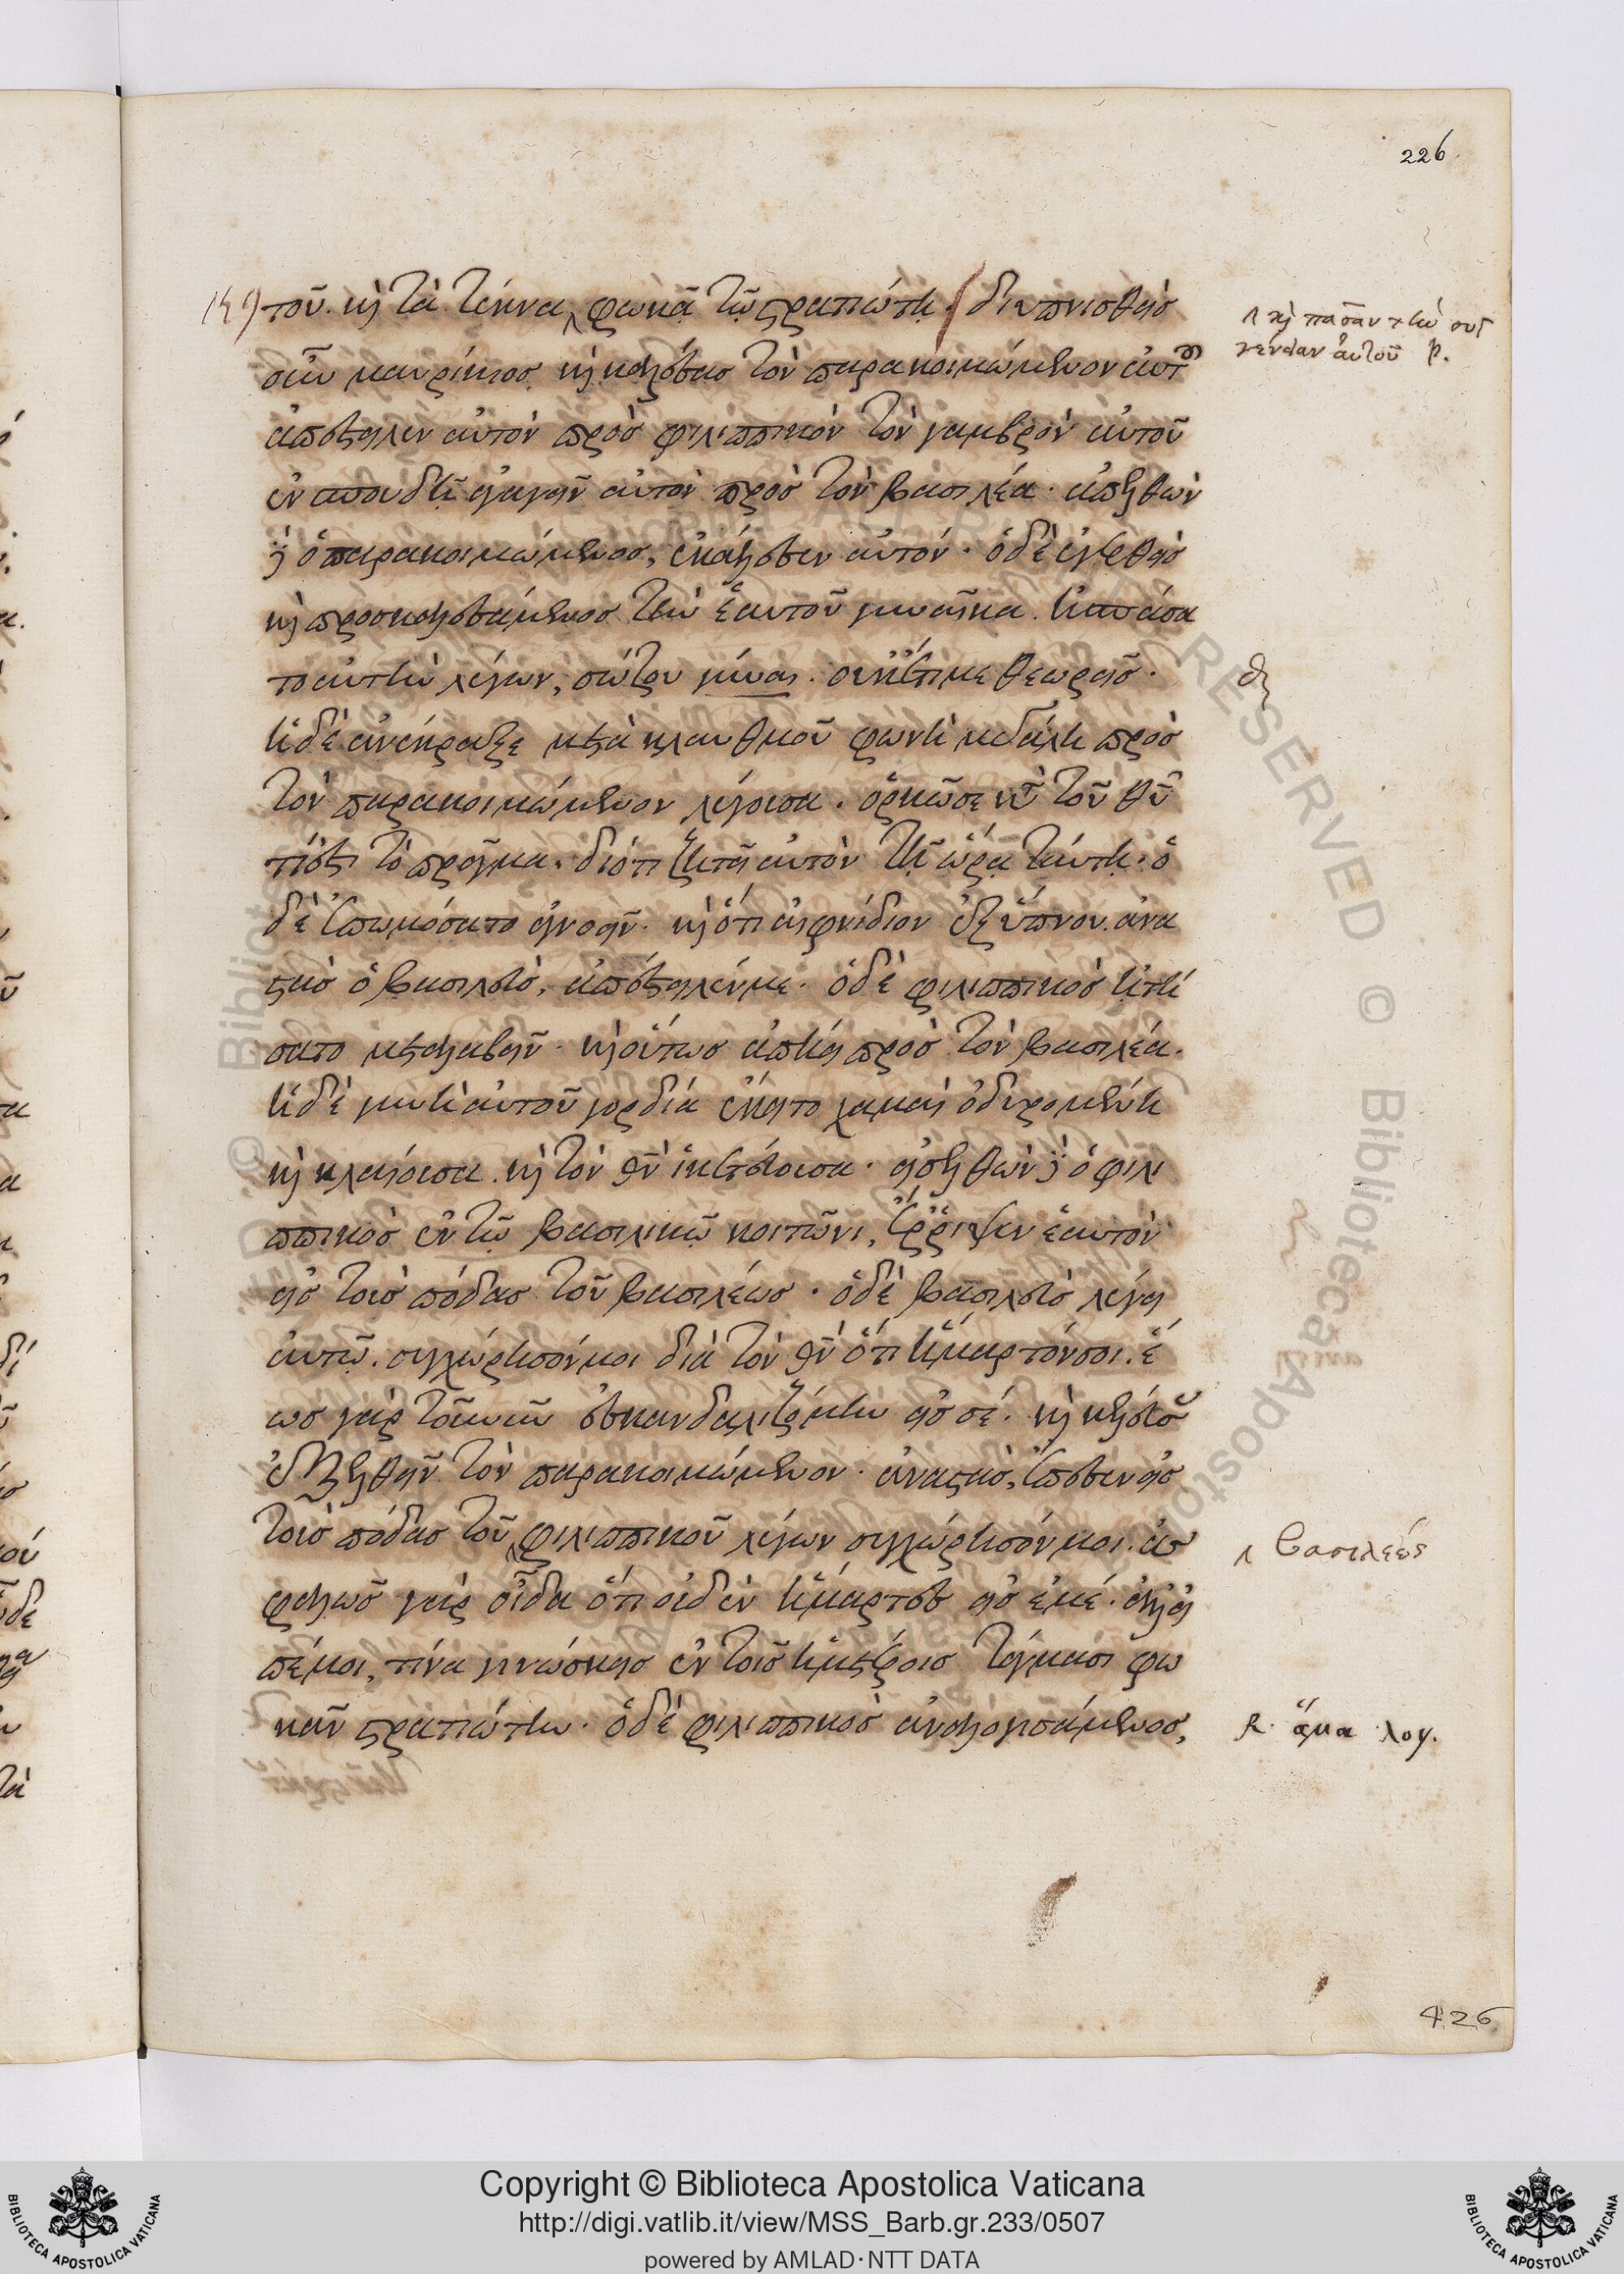 226
τοῦ. καὶ τὰ τέκνα φωκᾷ τῷ στρατιώτῃ. διυπνισθεὶς
οὖν μαυρίκιος καὶ καλέσας τὸν παρακοιμώμενον αὐτοῦ
ἀπέστειλεν αὐτὸν πρὸς φιλιππικὸν τὸν γαμβρὸν αὐτοῦ
ἐν σπουδῇ ἀγαγεῖν αὐτὸν πρὸς τὸν βασιλέα. ἀπελθὼν
δὲ ὁ παρακοιμώμενος, ἐκάλεσεν αὐτόν. ὁ δὲ ἐγερθεὶς
καὶ προσκαλεσάμενος τὴν ἑαυτοῦ γυναῖκα. ἠσπάσα
το αὐτὴν λέγων, σώζου γύναι. οὐκέτι με θεωρεῖς.
ἡ δὲ ἀνέκραξε μετὰ κλαυθμοῦ φωνῇ μεγάλῃ πρὸς
τὸν παρακοιμώμενον λέγουσα. ὁρκῶ σε κατὰ τοῦ θῦ
τί ἐστι τὸ πρᾶγμα. διότι ζητεῖ αὐτὸν τῇ ὥρᾳ ταύτῃ. ὁ
δὲ ἐπωμόσατο ἀγνοεῖν. καὶ ὅτι αἰφνίδιον ἐξ ὕπνου ἀνα
στὰς ὁ βασιλεὺς, ἀπέστειλέν με. ὁ δὲ φιλιππικὸς ᾐτή
σατο μεταλαβεῖν. καὶ οὕτως ἀπῄει πρὸς τὸν βασιλέα.
ἡ δὲ γυνὴ αὐτοῦ γορδία ἔκειτο χαμαὶ ὀδυρομένη
καὶ κλαίουσα. καὶ τὸν θν ἱκετεύουσα. εἰσελθὼν δὲ ὁ φιλι
ππικὸς ἐν τῷ βασιλικῷ κοιτῶνι, ἔρριψεν ἑαυτὸν
εἰς τοὺς πόδας τοῦ βασιλέως. ὁ δὲ βασιλεὺς λέγει
αὐτῷ. συγχώρησόν μοι διὰ τὸν θν ὅτι ἥμαρτόν σοι. ἕ
ως γὰρ τοῦ νῦν ἐσκανδαλιζόμην εἰς σέ. καὶ κελεύσας
ἐξελθεῖν τὸν παρακοιμώμενον. ἀναστὰς, ἔπεσεν εἰς
τοὺς πόδας τοῦ φιλιππικοῦ λέγων συγχώρησόν μοι. ἀσ
φαλῶς γὰρ οἶδα ὅτι οὐδὲν ἥμαρτες εἰς ἐμέ. ἀλλ' εἰ
πέ μοι, τίνα γινώσκεις ἐν τοῖς ἡμετέροις τάγμασι φω
κᾶν στρατιώτην. ὁ δὲ φιλιππικὸς ἀναλογισάμενος,
καὶ πᾶσαν τὴν συγ
γένειαν αὐτοῦ P.
βασιλέως
R. ἅμα λογ.
426
Copyright © Biblioteca Apostolica Vaticana
http://digi.vatlib.it/view/MSS_Barb.gr.233/0507
powered by AMLAD·NTT DATA
BIBLIOTECA APOSTOLICA VATICANA
BIBLIOTECA APOSTOLICA VATICANA